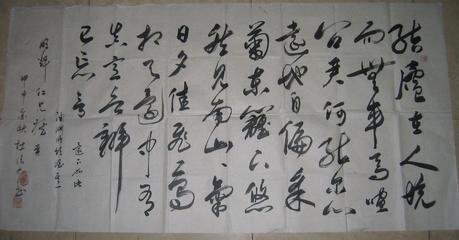 結廬在人境
而無車馬喧
問君何能尔心
遠地自偏采
菊東籬下悠
然見南山々氣
日夕佳飛鳥
相与還中有
真意欲辨
已忘言
還下落此
陶淵明
仁兄
甲申